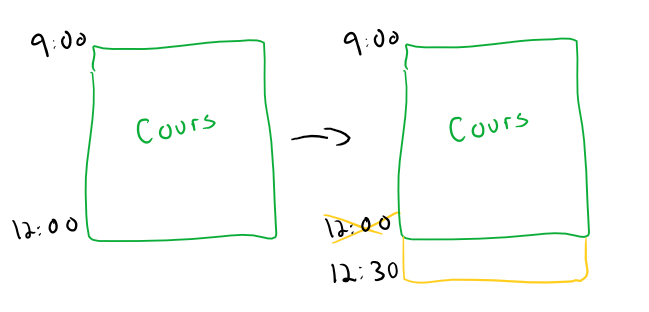 9:00
Cours
12:00
9:00
Cours
12:00
12:30